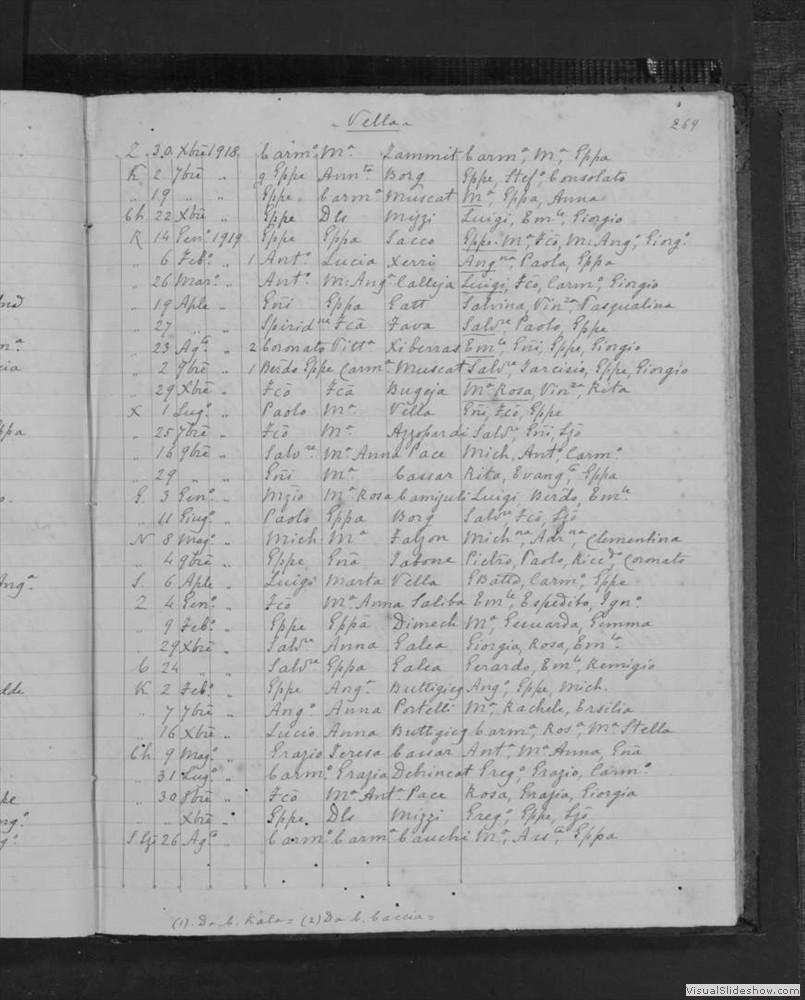 Vella
269
Z 30 Xbrē 1918 Carmo Ma Zammit Carmo, Ma, Eppa
K 2 7brē " g Eppe Annta Borg Eppe, Stefo, Consolato
" 19 " " Eppe Carma Muscat Ma, Eppa, Anna
Ch 22 Xbrē " Eppe Dls Mizzi Luigi, Emle, Giorgio
K 14 Geno 1919 Eppe Eppa Sacco Eppe. Ma, Fcō, M: Ango, Giorgo
" 6 Febo " 1 Anto Lucia Xerri Angna, Paola, Eppa
" 26 Maro " Anto M: Anga Calleja Luigi, Fcō, Carmo, Giorgio
" 19 Aple " Gnī Eppa Gatt Salvina, Vinza, Pasqualina
" 27 " " Spiridne Fcā Zava Salvre Paolo, Eppe
" 23 Agto " 2 Coronato Vitta Xiberras Emle, Gnī, Eppe, Giorgio
" 2 9brē " 1 Berdo Eppe Carma Muscat Salvre Tarcisio, Eppe, Giorgio
" 29 Xbrē " Fcō Fcā Bugeja Ma Rosa, Vinza, Rita
X 1 Lugo " Paolo Ma Vella Gnī, Fcō, Eppe
" 25 7brē " Fcō Ma Azzopardi Salvre, Gnī, Ljō
" 16 9brē " Salvre Ma Anna Pace Mich, Anto, Carmo
" 29 " " Gnī Ma Cassar Rita, Evangta, Eppa
G 3 Geno " Mzio Ma Rosa Camijuli Luigi Berdo, Emle
" 11 Giugo " Paolo Eppa Borg Salvre Fcō, Ljō
N 8 Mago " Mich Ma Falzon Michna, Adrna, Clementina
" 4 9brē " Eppe Gnā Sabone Pietro, Paolo, Riccdo Coronato
S. 6 Aple " Luigi Marta Vella GBatta, Carmo, Eppe
Z 4 Geno " Fcō Ma Anna Saliba Emle, Espedito, Igno
" 9 Febo " Eppe Eppa Dimech Ma, Genuarda, Gemma
" 29 Xbrē " Salvre Anna Galea Giorgia, Rosa, Emla
C 24 " " Salvre Eppa Galea Gerardo, Emle, Remigio
K 2 Febo " Eppe Anga Buttigieg Ango, Eppe, Mich.
" 7 7brē " Ango Anna Portelli Ma, Rachele, Ersilia
" 16 Xbrē " Lucio Anna Buttigieg Carma, Rosa, Ma Stella
Ch 9 Mago " Grazio Teresa Cassar Anta, Ma Anna, Gnā
" 31 Lugo " Carmo Grazia Debrincat Grego, Grazio, Carmo
" 30 8brē " Fcō Ma Anta Pace Rosa, Grazia, Giorgia
" " Xbrē " Eppe. Dls Mizzi Grego, Eppe, Ljō
S. Ljō 26 Agto " Carmo Carma Cauchi Ma, Assta, Eppa
(1). Da C. Kala = (2) Da C. Caccia =
VisualSlideshow.com